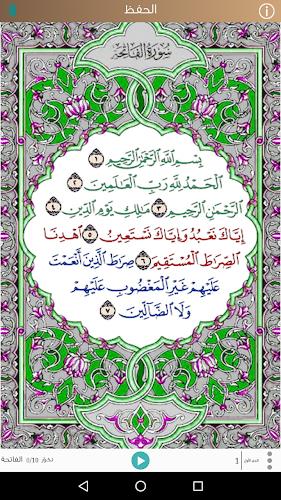 الحفظ
سُورَةُ الْفَاتِحَةِ
بِسْمِ ٱللَّهِ ٱلرَّحْمَٰنِ ٱلرَّحِيمِ ١
ٱلْحَمْدُ لِلَّهِ رَبِّ ٱلْعَٰلَمِينَ ٢
ٱلرَّحْمَٰنِ ٱلرَّحِيمِ ٣ مَٰلِكِ يَوْمِ ٱلدِّينِ ٤
إِيَّاكَ نَعْبُدُ وَإِيَّاكَ نَسْتَعِينُ ٥ ٱهْدِنَا
ٱلصِّرَٰطَ ٱلْمُسْتَقِيمَ ٦ صِرَٰطَ ٱلَّذِينَ أَنْعَمْتَ
عَلَيْهِمْ غَيْرِ ٱلْمَغْضُوبِ عَلَيْهِمْ
وَلَا ٱلضَّآلِّينَ ٧
1 الجزء الأول
0/10 الفاتحة